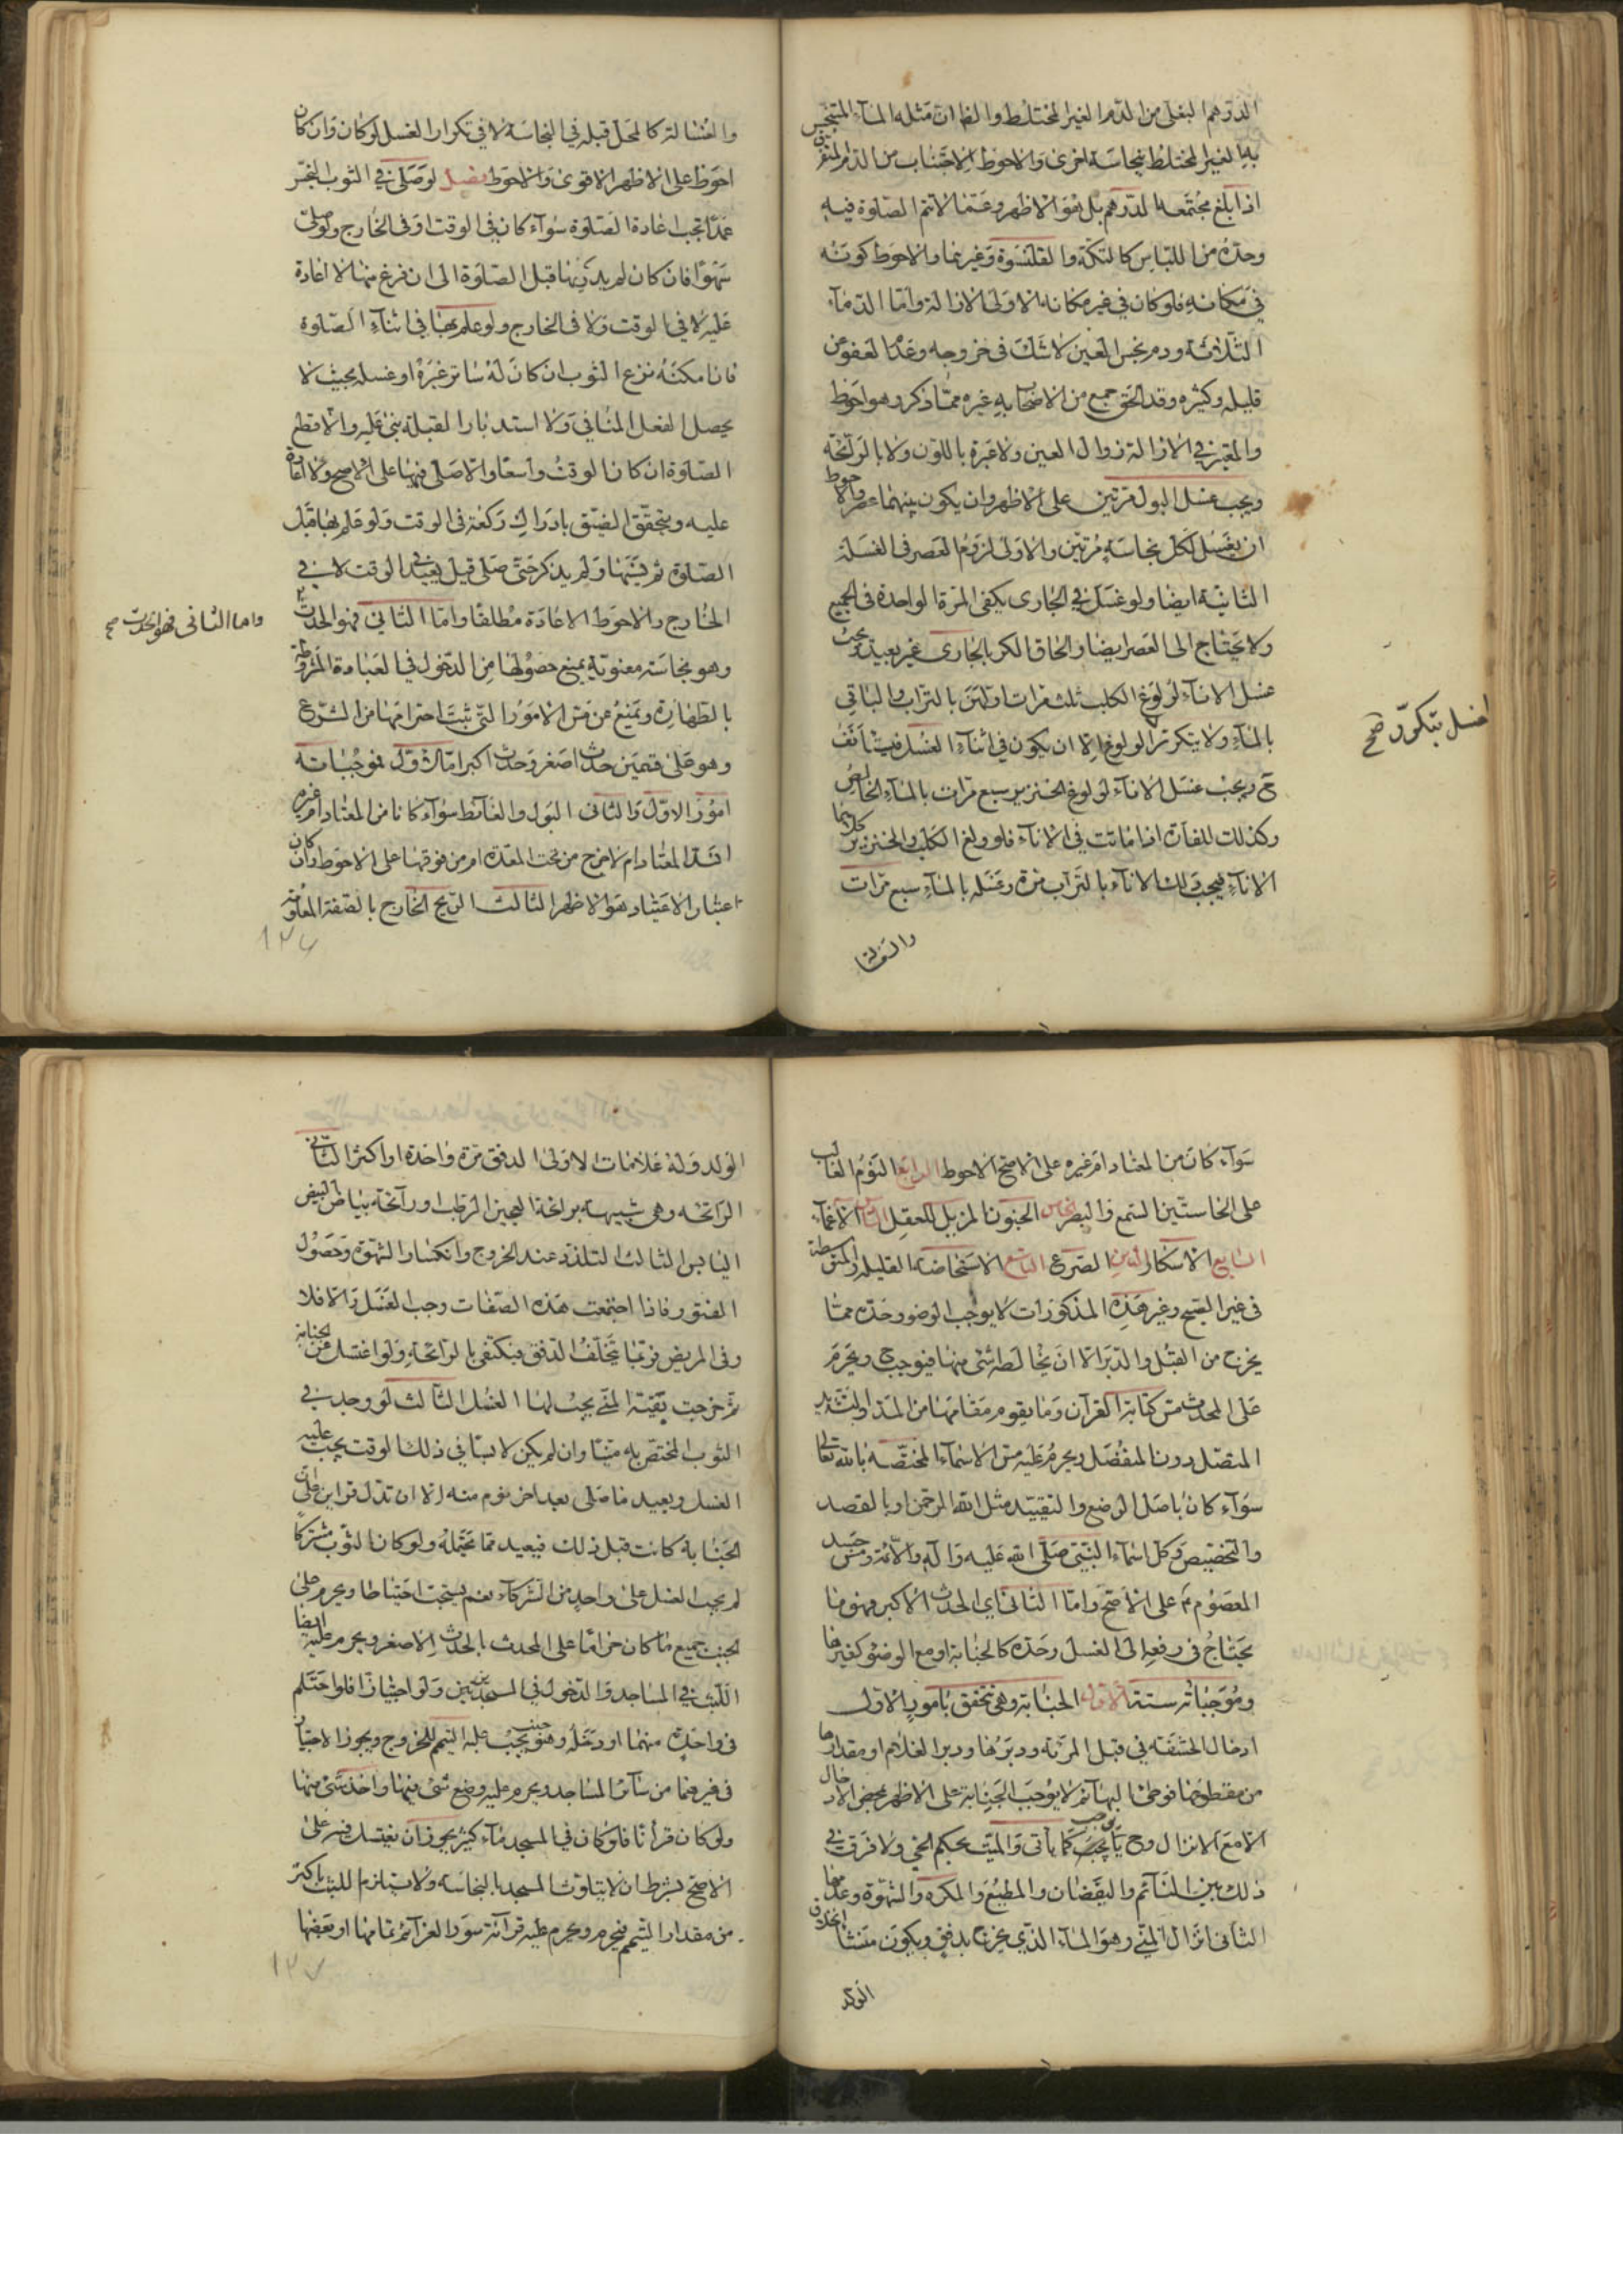 الدرهم البغلى من الدم الغير المختلط والظاهر ان مثله الماء المتنجس
به الغير المختلط بنجاسة اخرى والاحوط الاجتناب من الدم المتفرق
اذا بلغ مجتمعه الدرهم بل هو الاظهر وعما لا تتم الصلوة فيه
وحده من اللباس كالتكة والقلنسوة وغيرهما والاحوط كونه
في مكانه فلو كان في غير مكانه الاولى الازالة واما الدماء
الثلاثة ودم نجس العين لا شك في خروجه وعدم العفو عن
قليله وكثيره وقد الحق جمع من الاصحاب به غيره مما ذكر وهو احوط
والمعتبر في الازالة زوال العين ولا عبرة باللون ولا بالرائحة
ويجب غسل البول مرتين على الاظهر وان يكون بينهما عصر والاحوط
ان يغسل لكل نجاسة مرتين والاولى لزوم العصر في الغسلة
الثانية ايضا ولو غسل في الجارى يكفى المرة الواحدة في الجميع
ولا يحتاج الى العصر ايضا والحاق الكر بالجارى غير بعيد ويجب
غسل الاناء لولوغ الكلب ثلث مرات اولهن بالتراب والباقي
بالماء ولا يتكرر الولوغ الا ان يكون في اثناء الغسل فيستأنف
ح ويجب غسل الاناء لولوغ الخنزير سبع مرات بالماء الخالص
وكذلك للفارة اذا ماتت في الاناء فلو ولغ الكلب والخنزير كلاهما
الاناء فيجب ذلك الاناء بالتراب مرة وغسله بالماء سبع مرات
والغسالة
الغسل بتكرر صح
والغسالة كالمحل قبله في النجاسة لا في تكرار الغسل لو كان وان كان
احوط على الاظهر الاقوى والاحوط فصل لو صلى في الثوب النجس
عمدا تجب اعادة الصلوة سواء كان في الوقت او في الخارج ولو صلى
سهوا فان كان لم يدر بها قبل الصلوة الى ان فرغ منها لا اعادة
عليه لا في الوقت ولا في الخارج ولو علم بها في اثناء الصلوة
فان امكنه نزع الثوب ان كان له ساتر غيره او غسله بحيث لا
يحصل الفعل المنافي ولا استدبار القبلة بنى عليه والا قطع
الصلوة ان كان الوقت واسعا والا صلى فيها على الاصح ولا اعادة
عليه ويتحقق الضيق بادراك ركعة في الوقت ولو علم بها قبل
الصلوة ثم نسيها ولم يذكر حتى صلى قيل يعيد في الوقت لا في
الخارج والاحوط الاعادة مطلقا واما الثاني فهو الحدث
وهو نجاسة معنوية يمنع حصولها من الدخول في العبادة المشروطة
بالطهارة وتمنع عن مس الامور التى ثبت احترامها من الشرع
وهو على قسمين حدث اصغر وحدث اكبر اما الاول فموجباته
امور الاول والثانى البول والغائط سواء كانا من المعتاد ام غيره
انسد المعتاد ام لا خرج من تحت المعدة ام من فوقها على الاحوط وان كان
اعتبار الاعتياد هو الاظهر الثالث الريح الخارج بالصفة المعلومة
واما الثانى فهو الحدث صح
١٣٦
سواء كان من المعتاد ام غيره على الاصح الاحوط الرابع النوم الغالب
على الحاستين السمع والبصر الخامس الجنون المزيل للعقل السادس الاغماء
السابع الاسكار الثامن الصرع التاسع الاستحاضة القليلة والمتوسطة
فى غير الصبح وغير هذه المذكورات لا يوجب الوضوء وحده مما
يخرج من القبل والدبر الا ان يخالطه شئ منها فيوجب ح ويحرم
على المحدث مس كتابة القرآن وما يقوم مقامها من المد والتشديد
المتصل دون المنفصل ويحرم عليه مس الاسماء المختصة بالله تعالى
سواء كان باصل الوضع والتقييد مثل الله الرحمن او بالقصد
والتخصيص وكل اسماء النبي صلى الله عليه وآله والائمة ومس جسد
المعصوم ع على الاصح واما الثانى اى الحدث الاكبر فهو ما
يحتاج فى رفعه الى الغسل وحده كالجنابة او مع الوضوء كغيرها
وموجباته ستة الاول الجنابة وهى تتحقق بامور الاول
ادخال الحشفة في قبل المرئة ودبرها ودبر الغلام او مقدارها
من مقطوعها فوطى البهائم لا يوجب الجنابة على الاظهر بمحض الادخال
الا مع الانزال وح يجب كما يأتى والميت بحكم الحى ولا فرق في
ذلك بين النائم واليقضان والمطيع والمكره والشهوة وعدمها
الثانى انزال المنى وهو الماء الذي يخرج بدفق ويكون منشأ لخلق
الولد
الولد وله علامات الاولى الدفق مرة واحدة او اكثر الثانى
الرائحة وهى شبيهة برائحة العجين الرطب ورائحة بياض البيض
اليابس الثالث التلذذ عند الخروج وانكسار الشهوة وحصول
الفتور فاذا اجتمعت هذه الصفات وجب الغسل والا فلا
وفى المريض فربما يتخلف الدفق فيكتفى بالرائحة ولو اغتسل من جنابة
ثم خرجت بقية المنى يجب لها الغسل الثالث لو وجد في
الثوب المختص به منيا وان لم يكن لابسا في ذلك الوقت يجب عليه
الغسل ويعيد ما صلى بعد اخر نوم منه الا ان تدل قراين على ان
الجنابة كانت قبل ذلك فيعيد مما يحتمله ولو كان الثوب مشتركا
لم يجب الغسل على واحد من الشركاء نعم يستحب احتياطا ويحرم على
الجنب جميع ما كان حراما على المحدث بالحدث الاصغر ويحرم عليه ايضا
اللبث في المساجد والدخول في المسجدين ولو اجتيازا فلو احتلم
فى واحدة منهما او دخله وهو جنب يجب عليه التيمم للخروج ويجوز الاجتياز
فى غيرهما من سائر المساجد ويحرم عليه وضع شئ فيها واخذ شئ منها
ولو كان قرأنا فلو كان في المسجد ماء كثير يجوز ان يغتسل فيه على
الاصح بشرط ان لا يتلوث المسجد بالنجاسة ولا يستلزم اللبث باكثر
من مقدار التيمم فيحرم ويحرم عليه قرائة سور العزائم تمامها او بعضها
١٣٧